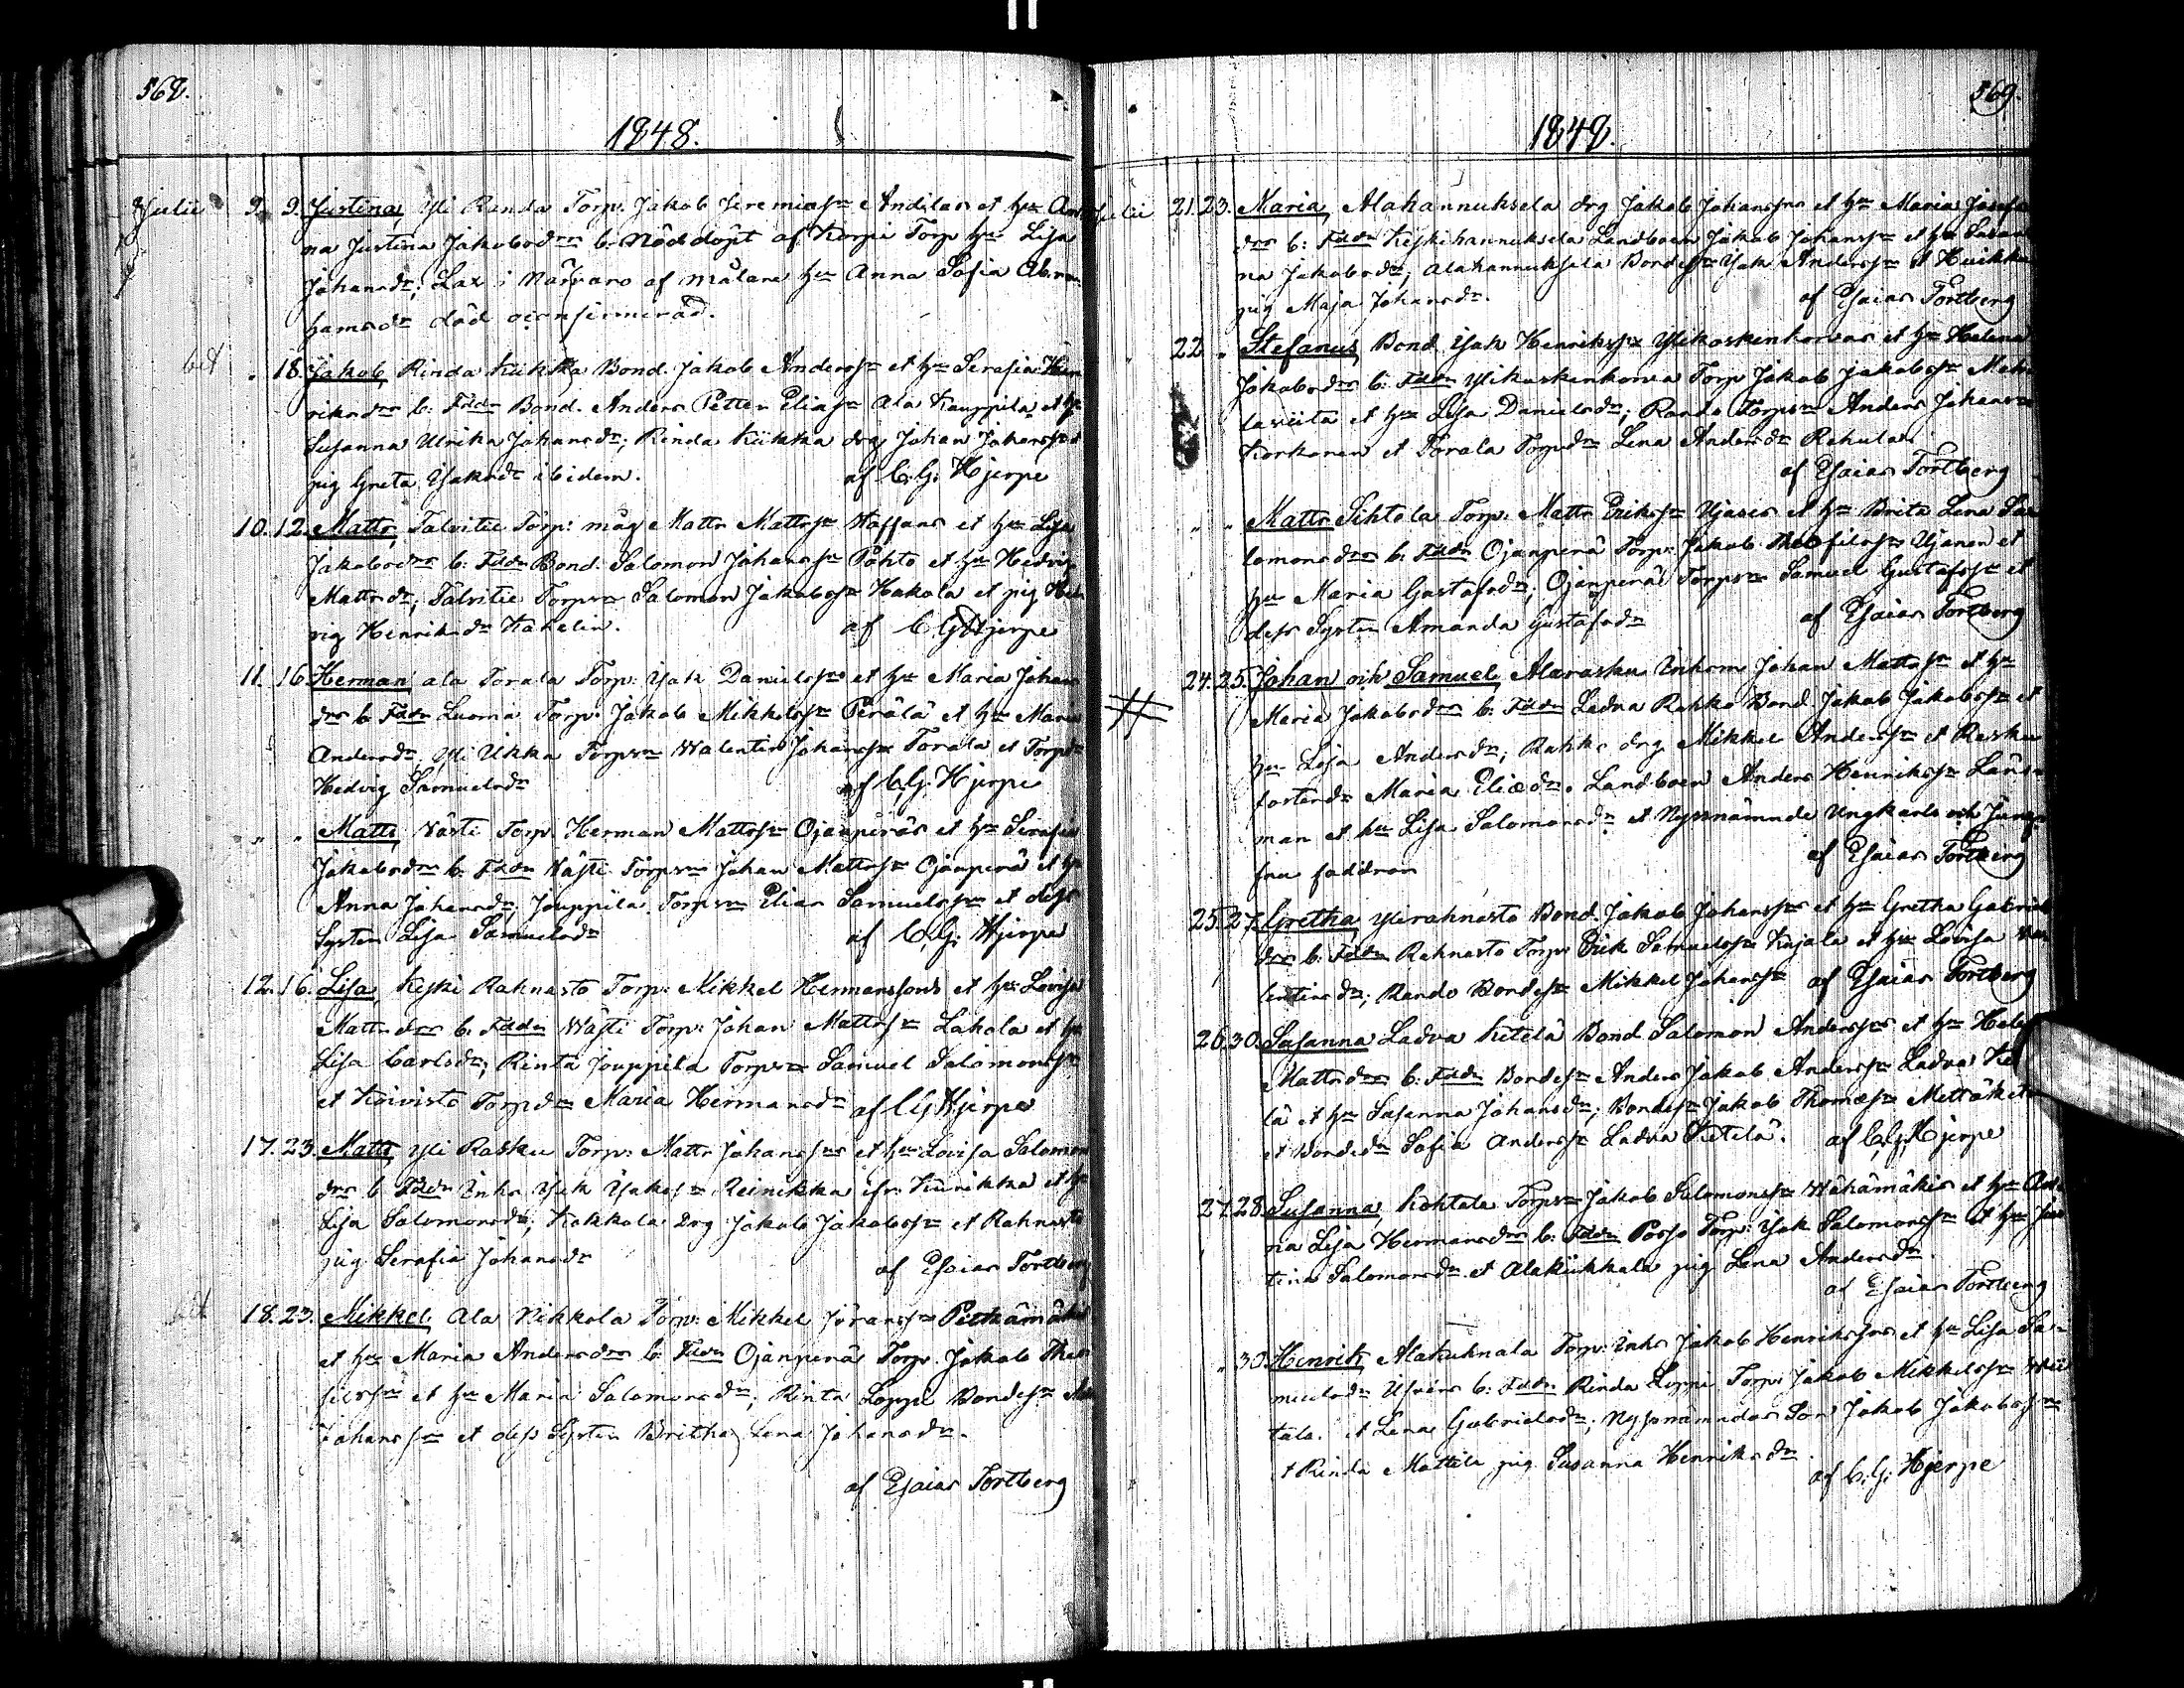 568.
1848.
Julii 9. 9. Justina, Yli Randa Torp. Jakob Jeremiæsn Andilas et hu An-
na Justina Jakobsdrs b. Nöddöpt af Korpi Torp hu Lisa
Johansdr; Lax i Närvaro af målare hu Anna Sofia Abra-
hamsdr död oconfirmerad.
bet „ 18. Jakob, Rinda Kiikka Bond. Jakob Anderssn et hu Serafia Hen-
riksdrs b. Faddr Bond. Anders Petter Eliæsn Ala Kauppila et hu
Susanna Ulrika Johansdr; Rinda Kiikka drg Johan Johanssn et
pig Greta Isaksdr ibidem. af C. G. Hjerpe
10. 12. Matts, Talvitie Torp: måg Matts Mattssn Staffans et hu Lisa
Jakobsdrs b. Faddr Bond. Salomon Johanssn Pohto et hu Hedvig
Mattsdr; Talvitie Torpsn Salomon Jakobssn Hakola et pig Hed-
vig Henriksdr Kakelin. af C G Hjerpe
11. 16. Herman ala Torala Torp: Isak Danielssns et hu Maria Johans
drs b Faddr Luoma Torp: Jakob Mikkelssn Perälä et hu Maria
Andersdr; Yli Ukka Torpsn Walentin Johanssn Torala et Torpdr
Hedvig Samuelsdr af C. G. Hjerpe
„ „ Matts, Wästi Torp Herman Mattssn Ojanperäs et hu Serafia
Jakobsdrs b. Faddr Wästi Torpsn Johan Mattssn Ojanperä et hu
Anna Johansdr; Jouppila Torpsn Elias Samuelssn et dess
Syster Lisa Samuelsdr af C. G. Hjerpe
12. 16. Lisa, Keski Rahnasto Torp: Mikkel Hermanssons et hu Lovisa
Mattsdrs b. Faddr Wästi Torp: Johan Mattssn Lahola et hu
Lisa Carlsdr; Rinta Jouppila Torpsn Samuel Salomonssn
et Koivisto Torpdr Maria Hermansdr af C G Hjerpe
17. 23. Matts, Yli Rasku Torp: Matts Johanssns et hu Lovisa Salomons
drs b Faddr Inhs Isak Isakssn Reinikka ifr. Kurikka et hu
Lisa Salomonsdr; Kokkola drg Jakob Jakobssn et Rahnasto
pig Serafia Johansdr af Esaias Fortberg
bet 18. 23. Mikkel, Ala Nikkola Torp: Mikkel Göranssn Pitkämäki
et hu Maria Andersdrs b. Faddr Ojanperä Torp. Jakob Theo-
filssn et hu Maria Salomonsdr; Rinta Loppi Bondesn
Johanssn et dess Syster Britha Lena Johansdr.
af Esaias Fortberg
569.
1848.
Julii 21. 23. Maria, Alahannuksela drg Jakob Johanssns et hu Maria Josefs
drs b: Faddr Keskihannuksela Landboen Jakob Johanssn et hu Susan-
na Jakobsdr; Alahannuksela Bondesn Isak Anderssn et Huikku
pig Maja Johansdr. af Esaias Fortberg
„ 22. „ Stefanus, Bond. Isak Henrikssn Ylikoskenkorvas et hu Helena
Jakobsdrs b: Faddr Ylikoskenkorva Torp Jakob Jakobssn
et hu Lisa Danielsdr; Rando Torpsn Anders Johanssn
Korkonen et Torala Torpdr Lena Andersdr Rehula.
af Esaias Fortberg
„ „ Matts Sihtola Torp: Matts Erikssn Ujases et hu Brita Lena Sa-
lomonsdrs b: Faddr Ojanperä Torp: Jakob Theofilssn Ujanen et
hu Maria Gustafsdr; Ojanperä Torpsn Samuel Gustafssn et
dess Syster Amanda Gustafsdr af Esaias Fortberg
24. 25. Johan och Samuel, Alarasku Inhom Johan Mattssn et hu
Maria Jakobsdrs b: Faddr Ladva Rahko Bond. Jakob Jakobssn et
hu Lisa Andersdr; Rahko drg Mikkel Anderssn et Rasku
fosterdr Maria Eliædr. Landboen Anders Henrikssn Läns-
man et hu Lisa Salomonsdr et Nyssnämnde Ungkarls och Jung-
fru faddrar af Esaias Fortberg
25. 27. Gretha, Ylirahnasto Bond. Jakob Johanssns et hu Gretha Gabriels
drs b. Faddr Rahnasto Torp: Erik Samuelssn Kujala et hu Lovisa Wa-
lentinsdr; Rando Bondesn Mikkel Johanssn af Esaias Fortberg
26. 30. Susanna Ladva Ketelä Bond. Salomon Anderssns et hu Hele
Mattsdrs b: Faddr Bondesn Anders Jakob Anderssn Ladva Ke
lä et hu Susanna Johansdr; Bondesn Jakob Thomæsn
et Bondedr Sofia Anderssn Ladva Ketelä. af C. G. Hjerpe
27. 28. Susanna, Kohtala Torpsn Jakob Salomonssn Wähämäkis et hu An-
na Lisa Hermansdrs b: Faddr Porsa Torp: Isak Salomonssn et hu Jus-
tina Salomonsdr et Alakiikkala pig Lena Andersdr
af Esaias Fortberg
„ 30. Henrik, Alakuhnala Torp: Inhs Jakob Henrikssns et hu Lisa Sa-
muelsdr b: Faddr Rinda Loppi Torp: Jakob Mikkelssn Wii-
tala et Lena Gabrielsdr; Nyssnämndas Son Jakob Jakobssn
et Rinda Mattila pig Susanna Henriksdr
af C. G: Hjerpe